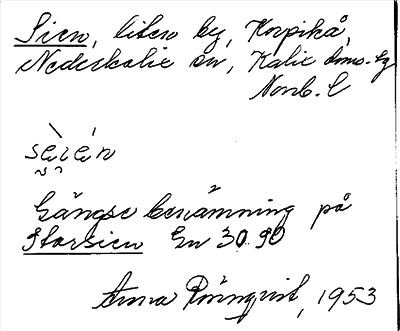 Sien, liten by, Korpikå,
Nederkalix sn, Kalix doms. hg
Norrb. l
sèi̯én
Gängse benämning på
Storsien En 30 90
Anna Rönnqvist, 1953